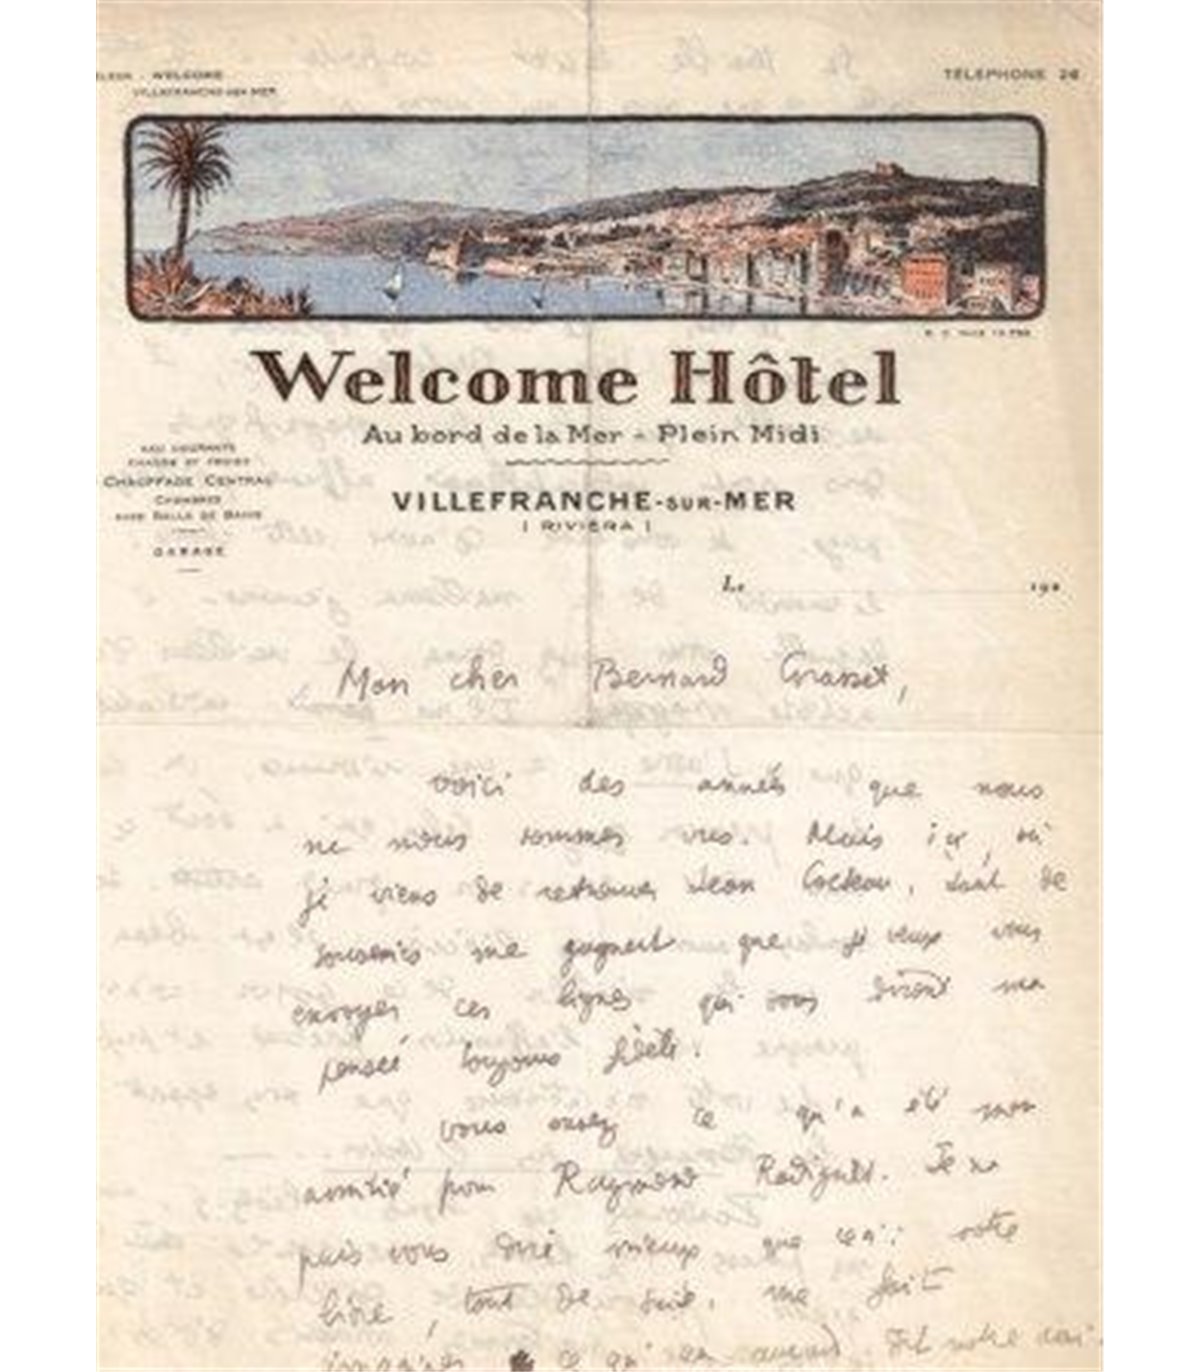 WELCOME
VILLEFRANCHE-SUR-MER
TÉLÉPHONE 26
Welcome Hôtel
Au bord de la Mer - Plein Midi
EAU COURANTE
CHAUDE ET FROIDE
CHAUFFAGE CENTRAL
CHAMBRES
AVEC SALLE DE BAINS
GARAGE
VILLEFRANCHE-SUR-MER
(RIVIERA)
Le 192
Mon cher Bernard Grasset,
voici des années que nous
ne nous sommes vus. Mais ici, où
je viens de retrouver Jean Cocteau, tant de
souvenirs me gagnent que je veux vous
envoyer ces lignes qui vous diront ma
pensée toujours fidèle.
Vous savez ce qu'a été mon
amitié pour Raymond Radiguet. Je ne
puis vous dire mieux que ceci : votre
livre, tout de suite, me fait
imaginer ce qu'en aurait dit notre